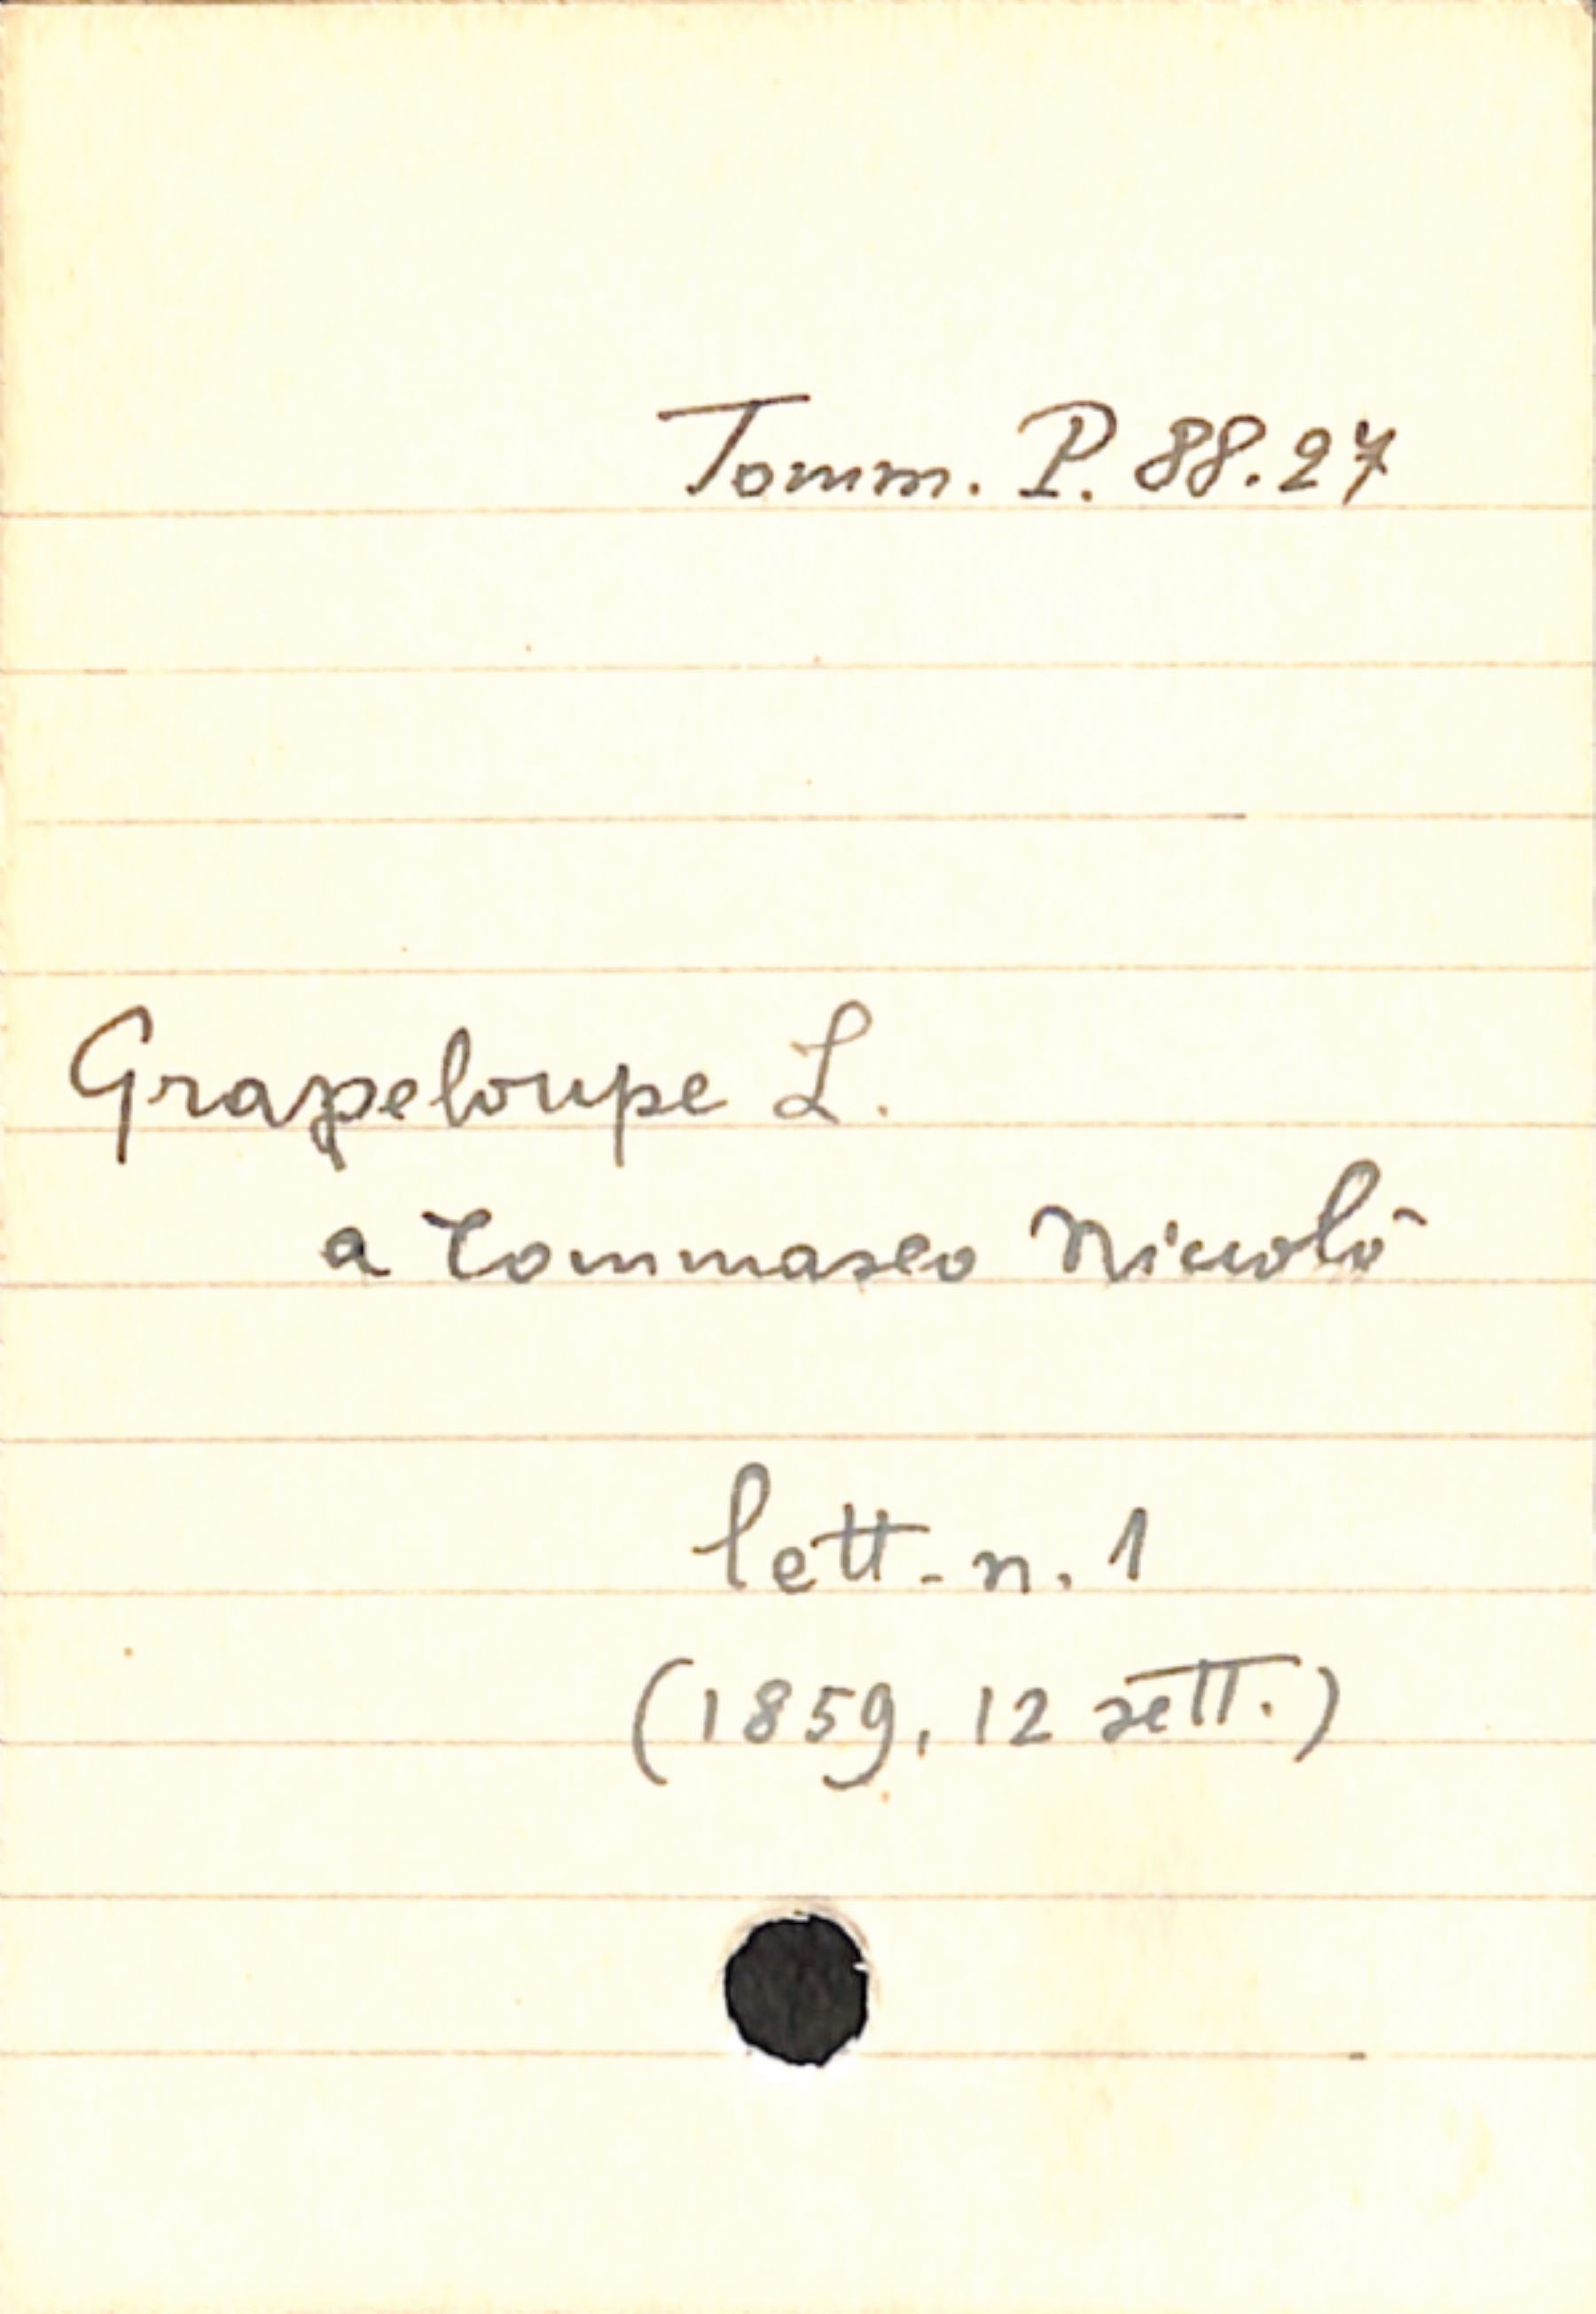 Tomm. P. 88.27
Grapeloupe L.
a Tommaseo Niccolò
lett. n. 1
(1859, 12 sett.)